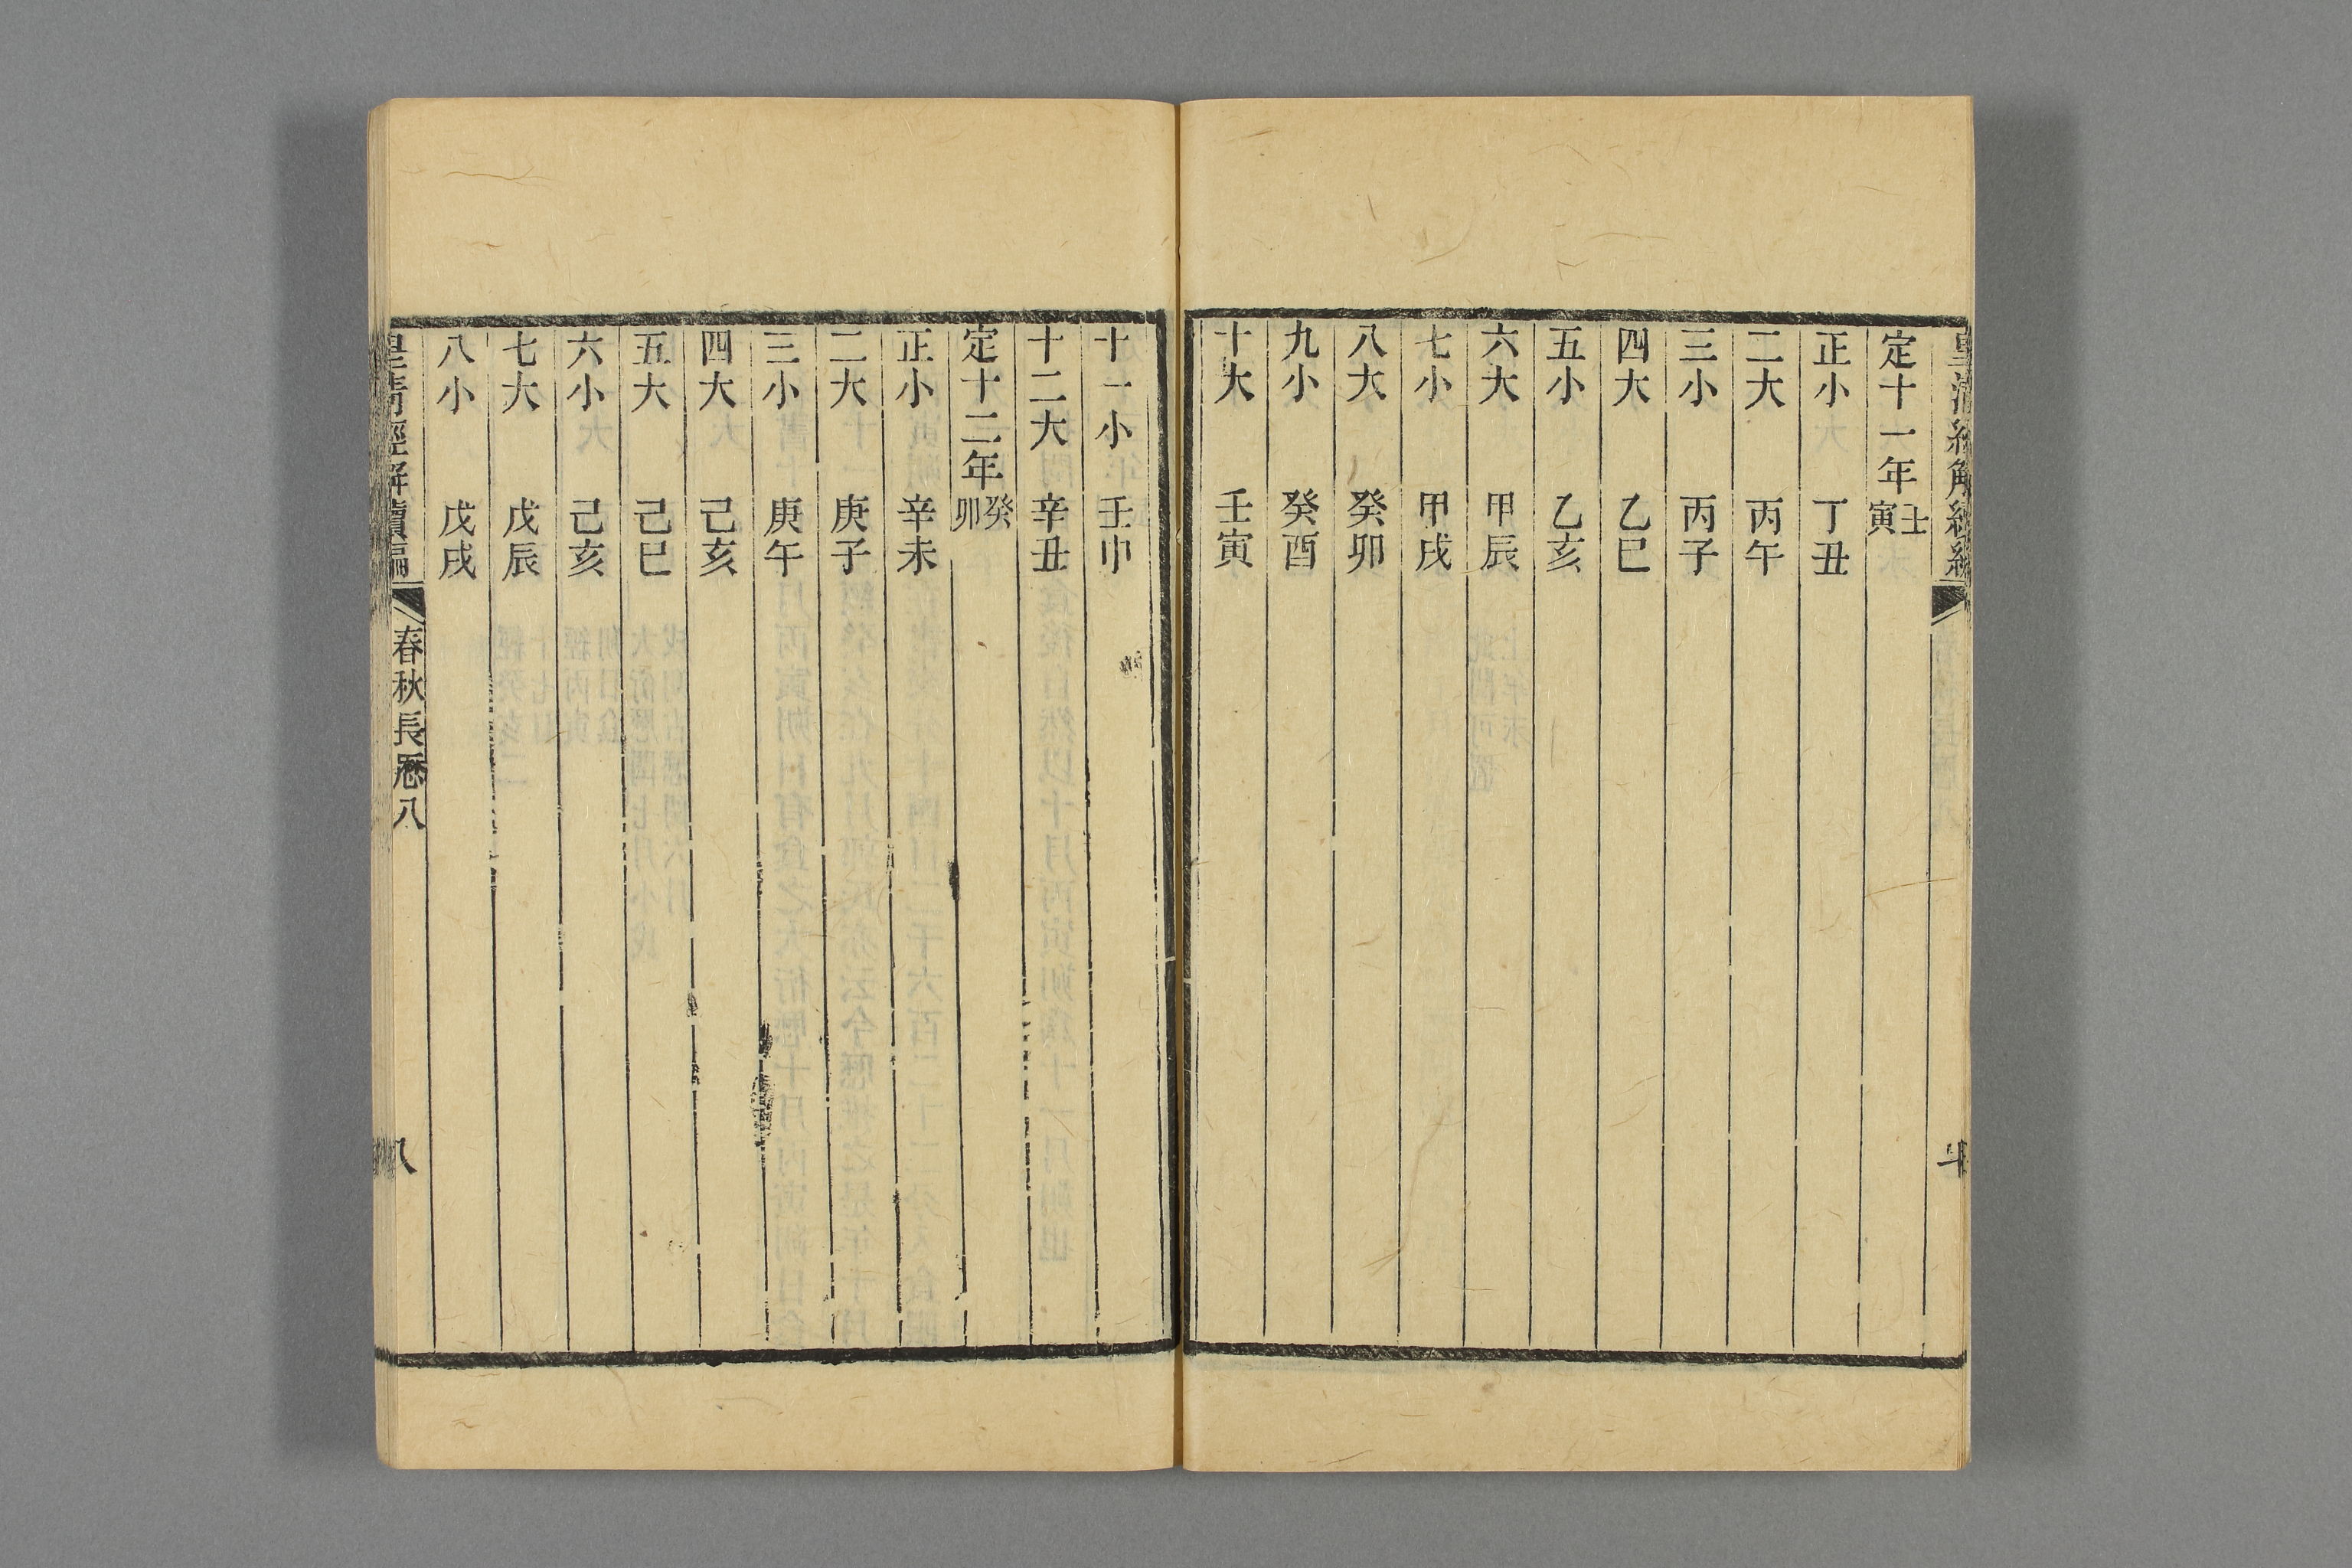 定十一年壬寅
正小 丁丑
二大 丙午
三小 丙子
四大 乙巳
五小 乙亥
六大 甲辰
七小 甲戌
八大 癸卯
九小 癸酉
十大 壬寅
十一小 壬申
十二大 辛丑
定十二年癸卯
正小 辛未
二大 庚子
三小 庚午
四大 己亥
五大 己巳
六小 己亥
七大 戊辰
八小 戊戌
皇清經解續編 春秋長厤八 八